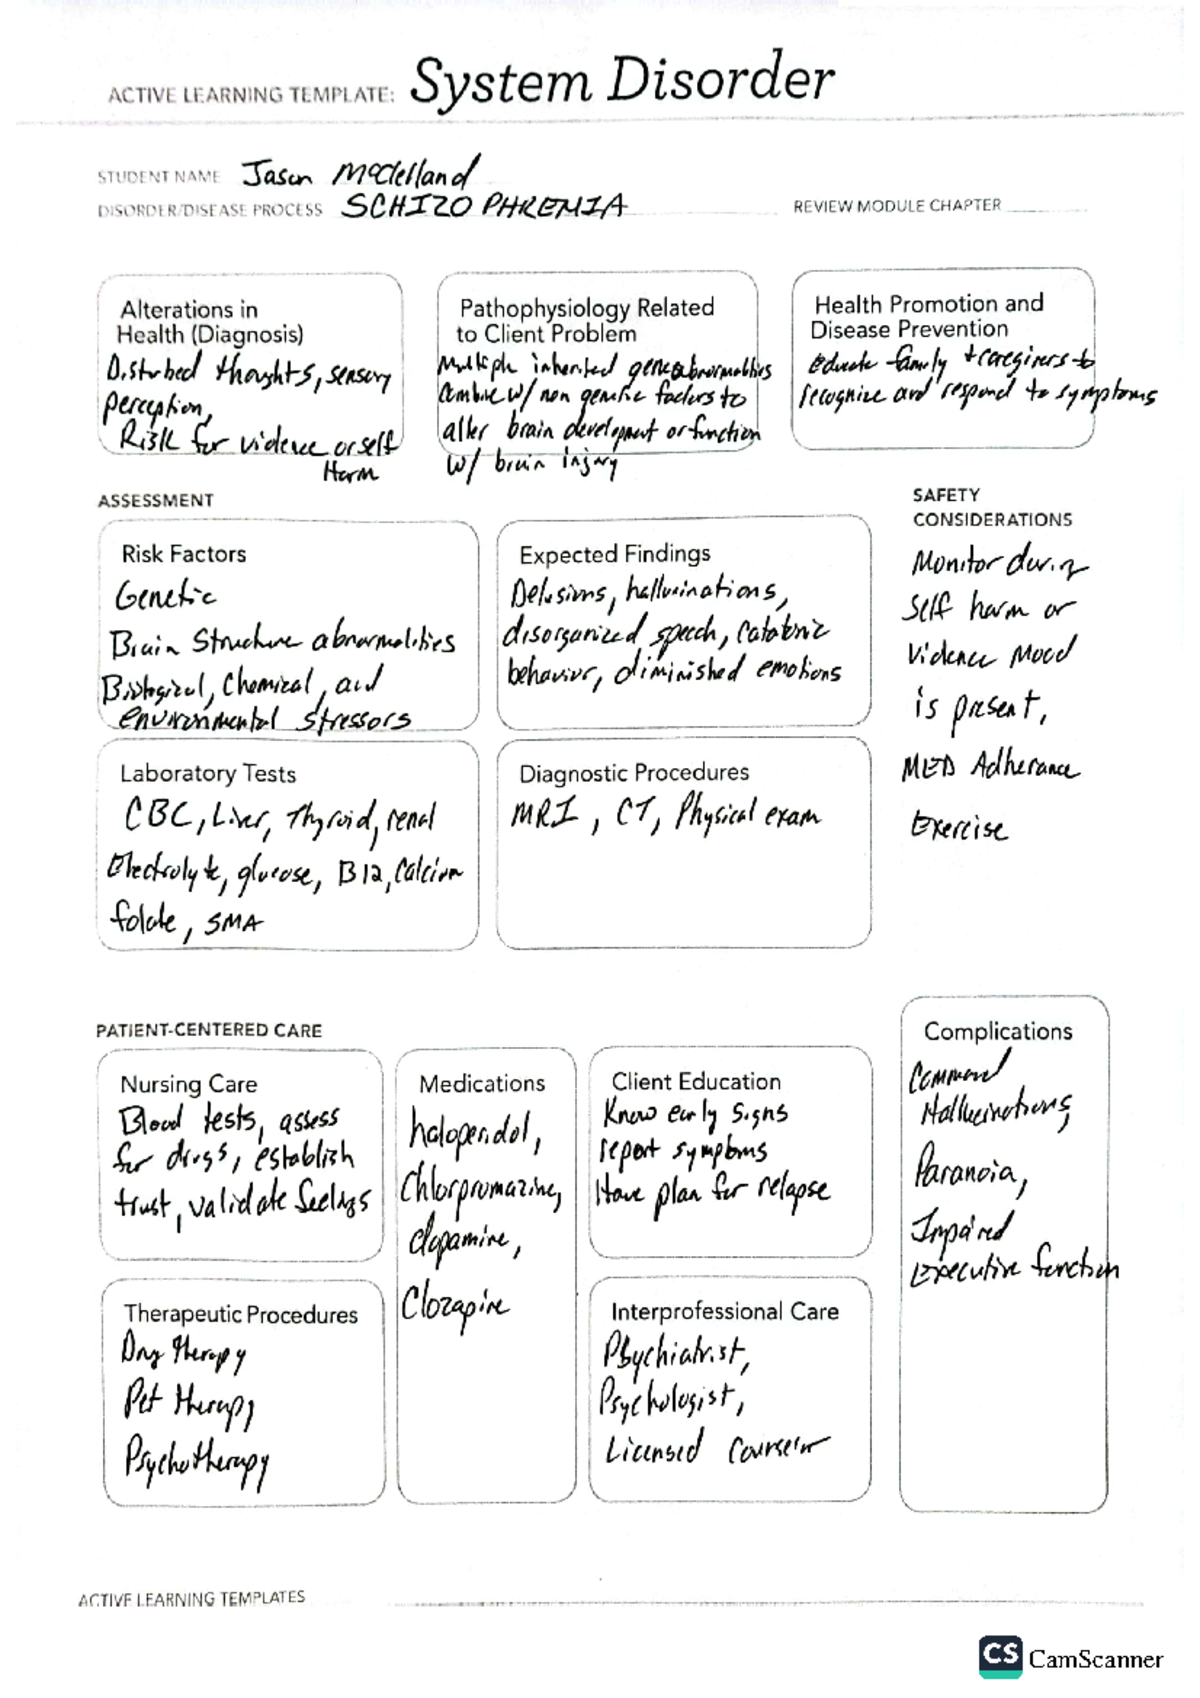 ACTIVE LEARNING TEMPLATE: System Disorder
STUDENT NAME Jason McClelland
DISORDER/DISEASE PROCESS SCHIZOPHRENIA
REVIEW MODULE CHAPTER
Alterations in
Health (Diagnosis)
Disturbed thoughts, sensory
perception,
Risk for violence or self
Harm
Pathophysiology Related
to Client Problem
Multiple inherited gene abnormalities
combine w/ non genetic factors to
alter brain development or function
w/ brain injury
Health Promotion and
Disease Prevention
Educate family + caregivers to
recognize and respond to symptoms
ASSESSMENT
Risk Factors
Genetic
Brain Structure abnormalities
Biological, Chemical, and
environmental stressors
Expected Findings
Delusions, hallucinations,
disorganized speech, catatonic
behavior, diminished emotions
SAFETY
CONSIDERATIONS
Monitor during
self harm or
violence Mood
is present,
MED Adherance
Exercise
Laboratory Tests
CBC, Liver, Thyroid, renal
Electrolyte, glucose, B12, Calcium
folate, SMA
Diagnostic Procedures
MRI, CT, Physical exam
PATIENT-CENTERED CARE
Nursing Care
Blood tests, assess
for drugs, establish
trust, validate feelings
Medications
haloperidol,
Chlorpromazine,
dopamine,
Clozapine
Client Education
Know early signs
report symptoms
Have plan for relapse
Complications
Command
Hallucinations,
Paranoia,
Impaired
Executive function
Therapeutic Procedures
Drug therapy
Pet therapy
Psychotherapy
Interprofessional Care
Psychiatrist,
Psychologist,
Licensed Counselor
ACTIVE LEARNING TEMPLATES
CS CamScanner